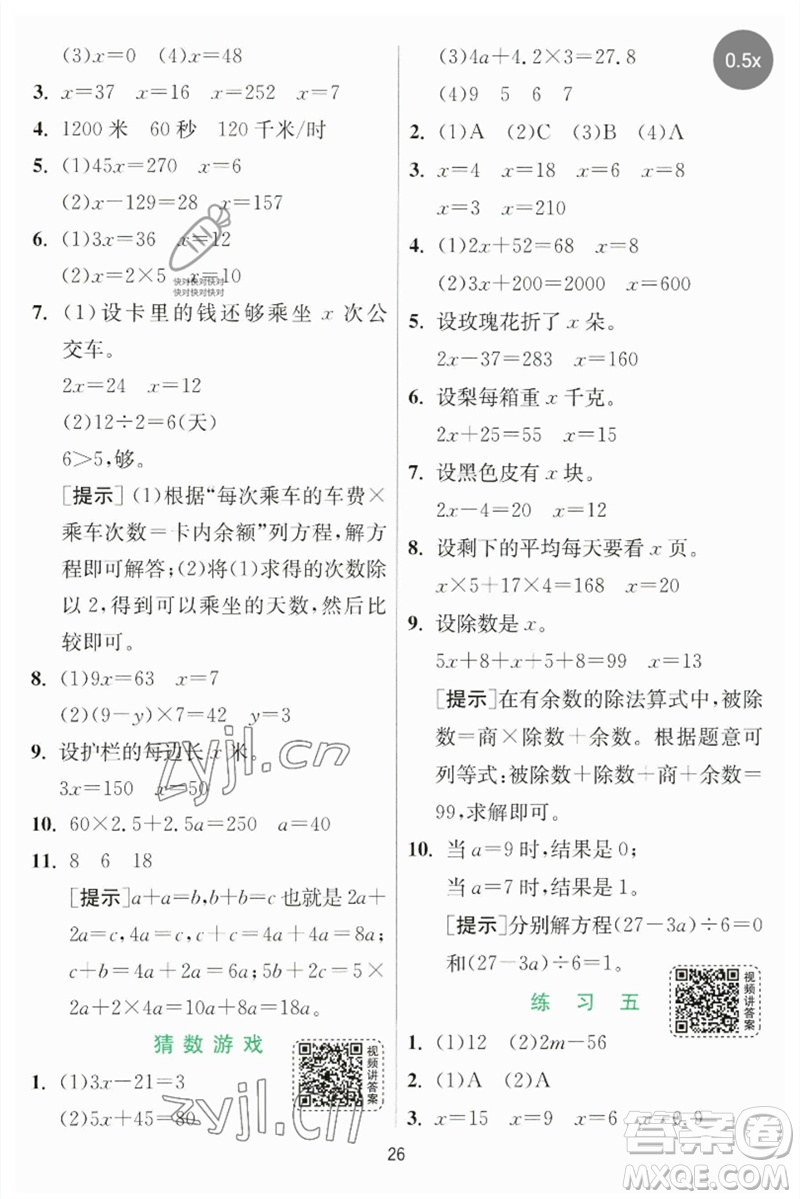 (3)x=0　(4)x=48
3. x=37　x=16　x=252　x=7
4. 1200 米　60 秒　120 千米/时
5. (1)45x=270　x=6
(2)x−129=28　x=157
6. (1)3x=36　x=12
(2)x=2×5　x=10
快对快对快对
快对快对快对
7. (1)设卡里的钱还够乘坐 x 次公
交车。
2x=24　x=12
(2)12÷2=6(天)
6>5,够。
[提示](1)根据“每次乘车的车费×
乘车次数=卡内余额”列方程，解方
程即可解答；(2)将(1)求得的次数除
以 2，得到可以乘坐的天数，然后比
较即可。
8. (1)9x=63　x=7
(2)(9−y)×7=42　y=3
9. 设护栏的每边长 x 米。
3x=150　x=50
zyjl.cn
10. 60×2.5+2.5a=250　a=40
11. 8　6　18
[提示]a+a=b,b+b=c 也就是 2a+
2a=c,4a=c,4a+4a=c+c=8a;
c+b=4a+2a=6a;5b+2c+4a=
2a+2a+2a+2a+2a+8a=18a。
猜数游戏
视频讲答案
1. (1)3x−21=3
(2)5x+45=80
zyjl.cn
0.5x
(3)4a+4.2×3=27.8
(4)9　5　6　7
2. (1)A　(2)C　(3)B　(4)A
3. x=4　x=18　x=6　x=8
x=3　x=210
4. (1)2x+52=68　x=8
(2)3x+200=2000　x=600
5. 设玫瑰花折了 x 朵。
2x−37=283　x=160
6. 设梨每箱重 x 千克。
2x+25=55　x=15
7. 设黑色皮有 x 块。
2x−4=20　x=12
8. 设剩下的平均每天要看 x 页。
x×5+17×4=168　x=20
9. 设除数是 x。
5x+8+x+5+8=99　x=13
[提示]在有余数的除法算式中，被除
数=商×除数+余数。根据题意可
列等式：被除数+除数+商+余数=
99，求解即可。
10. 当 a=9 时，结果是 0；
当 a=7 时，结果是 1。
[提示]分别解方程(27−3a)÷6=0
和(27−3a)÷6=1。
练习五
视频讲答案
1. (1)12　(2)2m−56
2. (1)A　(2)A
3. x=15　x=9　x=6　x=0.9
答案圈
MXQE.COM
26